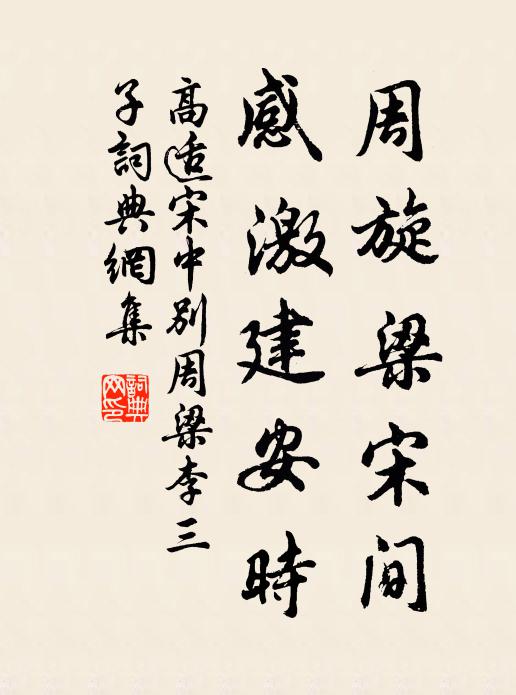 周旋梁宋間
感激建安時
高适宋中別周梁李三
子詞典網集
詞典
网印